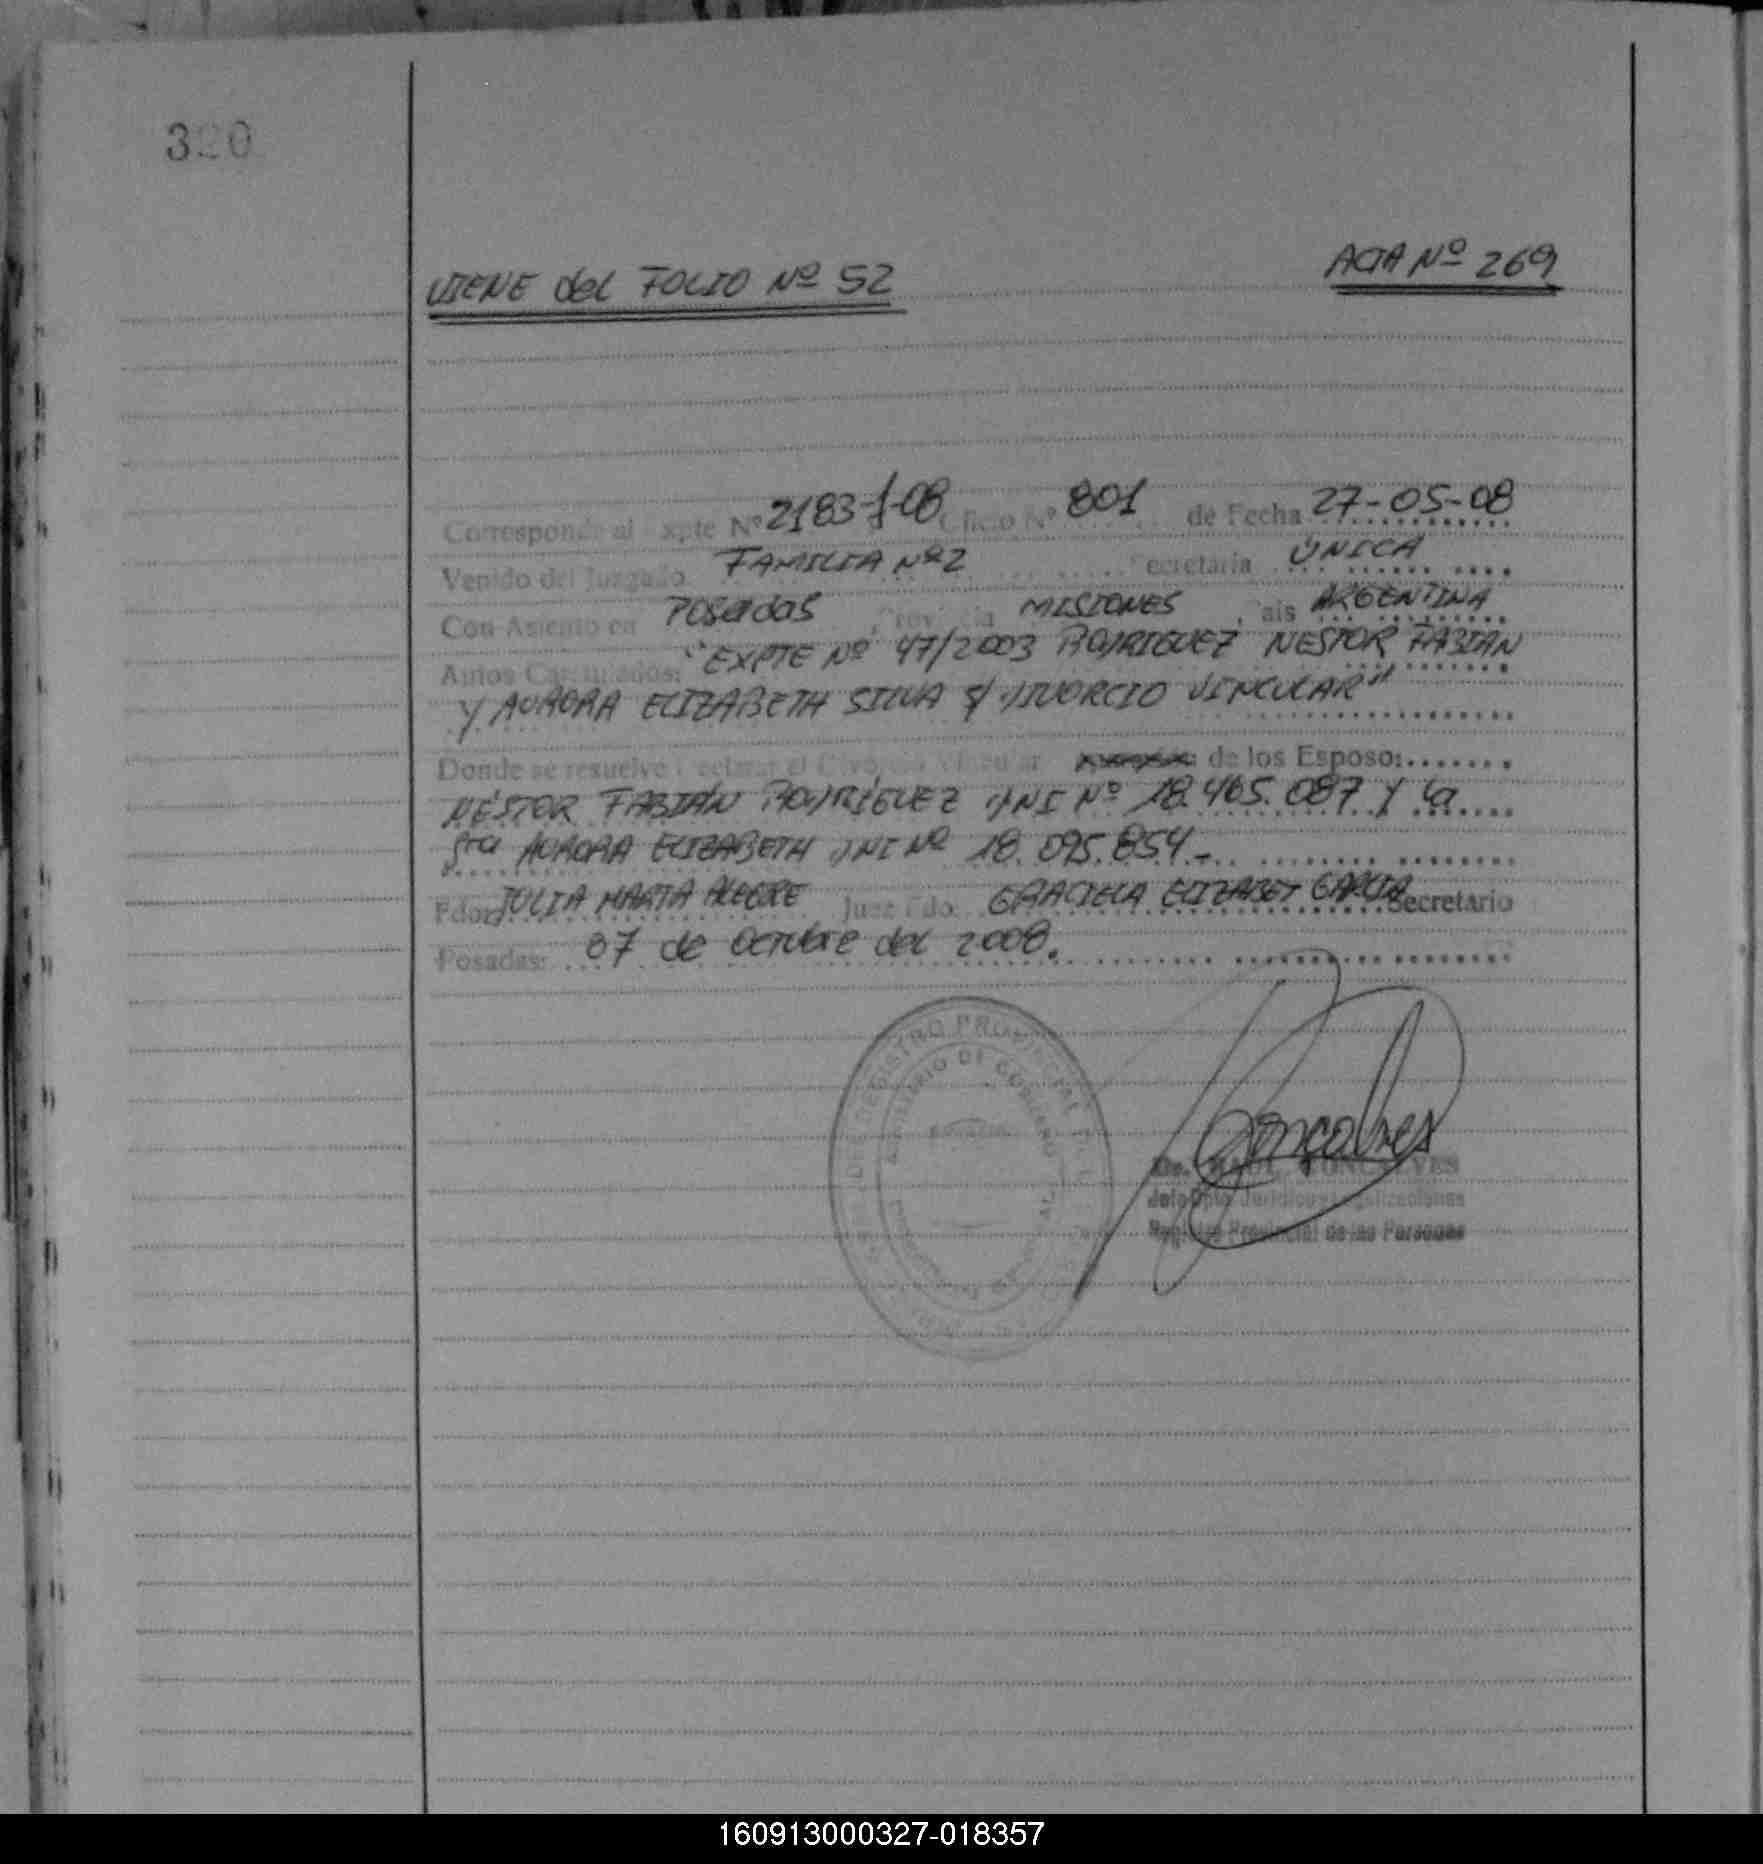 320
VIENE del FOLIO Nº 52
ACTA Nº 269
Corresponde al Expte Nº 2183-J-08 Oficio Nº 801 de Fecha 27-05-08
Venido del Juzgado FAMILIA Nº 2 Secretaria ÚNICA
Con Asiento en Posadas, Provincia MISIONES, Pais ARGENTINA
Autos Caratulados: "EXPTE Nº 47/2003 RODRIGUEZ NESTOR FABIAN
Y AURORA ELIZABETH SILVA S/ DIVORCIO VINCULAR"
Donde se resuelve Declarar el Divorcio Vincular de los Esposo:
NÉSTOR FABIÁN RODRÍGUEZ DNI Nº 18.465.087 Y la
Sra AURORA ELIZABETH DNI Nº 18.095.854.-
Fdo: JULIA MARTA ALEGRE Juez Fdo. GRACIELA ELIZABET GARCIA Secretario
Posadas: 07 de Octubre del 2008.
REGISTRO PROVINCIAL
MINISTERIO DE GOBIERNO
Goncalves
Dr. RAUL GONCALVES
Jefe Dpto Juridico y Legalizaciones
Registro Provincial de las Personas
160913000327-018357